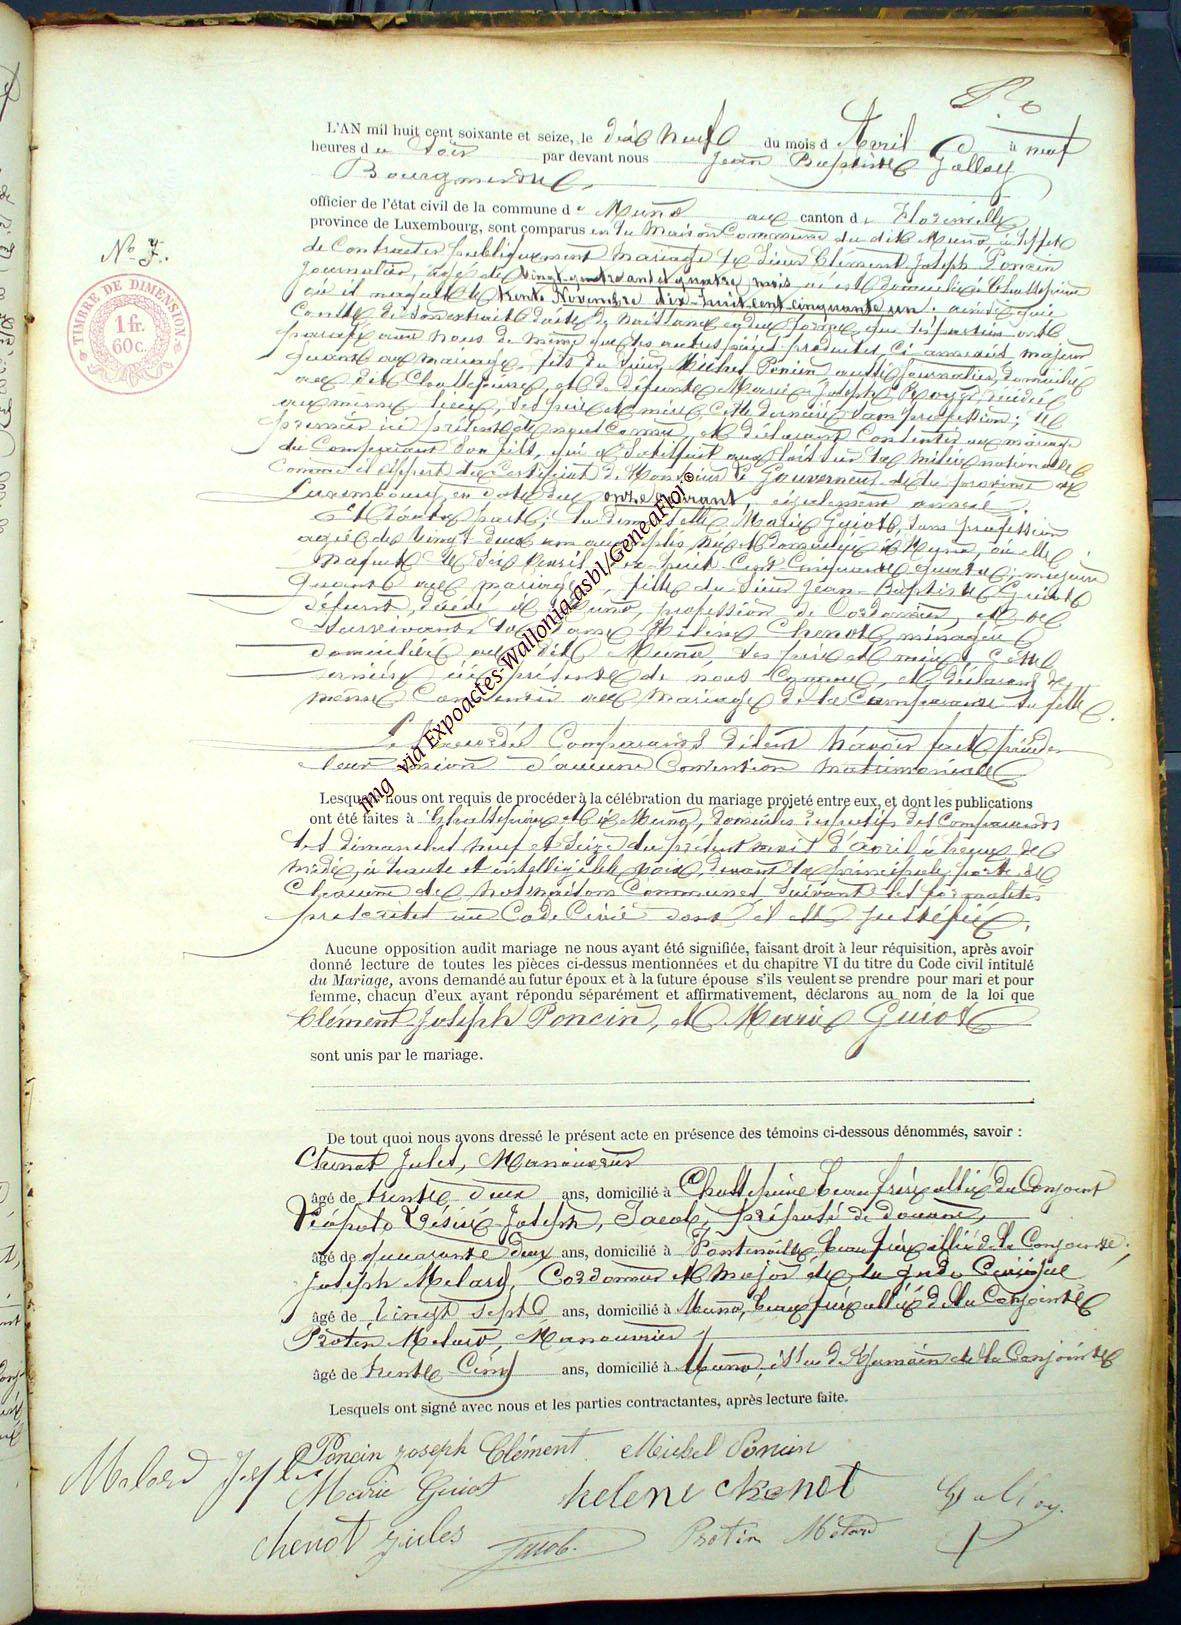 L'AN mil huit cent soixante et seize, le dix neuf du mois d Avril à neuf
heures d u soir par devant nous Jean Baptiste Galloy
Bourgmestre
officier de l'état civil de la commune d e Muno au canton d e Florenville
province de Luxembourg, sont comparus en la maison Commune du dit Muno à l'effet
No 7.
TIMBRE DE DIMENSION
1 fr.
60 c.
de Contracter publiquement mariage le sieur Clément Joseph Poncin
journalier, âgé de vingt quatre ans et quatre mois, né et domicilié à
où il naquit le trente Novembre dix-huit cent cinquante un, ainsi que
Conste de son extrait d'acte de naissance en due forme, que les parties ont
nous de même que les autres pièces produites, ci annexées, majeur
quant au mariage, fils du sieur Michel Poncin aussi journalier, domicilié
au dit et de défunte Marie Joseph
au même lieu, ses père et mère cette dernière sans profession; le
premier ici présent de nous Connu, et déclarant Consentir au mariage
du Comparant son fils, qui a satisfait aux lois sur la milice nationale
Comme il Certificat de Monsieur le Gouverneur de la province de
Luxembourg, en date du onze courant également annexé.
Et d'autre part, la demoiselle Marie Guiot, sans profession
âgée de vingt deux ans accomplis, née et domiciliée à Muno, où elle
naquit le six Avril dix huit Cent Cinquante quatre, majeure
quant au mariage, fille du sieur Jean-Baptiste Guiot
défunt, décédé à Muno, profession de Cordonnier, et de
survivante la dame Hélène Chenot, ménagère
domiciliée au dit Muno, ses père et mère, cette
dernière ici présente de nous Connue, et déclarant de
même Consentir au mariage de la Comparante sa fille.
Les Comparants disent n'avoir fait précéder
leur union d'aucune Convention matrimoniale
Lesquels nous ont requis de procéder à la célébration du mariage projeté entre eux, et dont les publications
ont été faites à et à Muno, domiciles respectifs des Comparants
les dimanches neuf et seize du présent mois d'avril à heure de
midi, à haute et intelligible voix, devant la principale porte de
Chacune de nos maisons Communes, suivant les formalités
prescrites au Code Civil dont il est justifié.
Aucune opposition audit mariage ne nous ayant été signifiée, faisant droit à leur réquisition, après avoir
donné lecture de toutes les pièces ci-dessus mentionnées et du chapitre VI du titre du Code civil intitulé
du Mariage, avons demandé au futur époux et à la future épouse s'ils veulent se prendre pour mari et pour
femme, chacun d'eux ayant répondu séparément et affirmativement, déclarons au nom de la loi que
Clément Joseph Poncin, et Marie Guiot
sont unis par le mariage.
De tout quoi nous avons dressé le présent acte en présence des témoins ci-dessous dénommés, savoir :
Chenot Jules, Manouvrier
âgé de trente deux ans, domicilié à beau frère allié du Conjoint
Désiré Joseph, Jacob, préposé de douane,
âgé de quarante deux ans, domicilié à Fontenoille, beau frère allié de la Conjointe;
Joseph Melard, Cordonnier et major de la garde Civique
âgé de vingt sept ans, domicilié à Muno, beau frère allié de la Conjointe
Protin Melard, Manouvrier
âgé de trente Cinq ans, domicilié à Muno, issu de Germain de la Conjointe
Lesquels ont signé avec nous et les parties contractantes, après lecture faite.
Poncin Joseph Clément Michel Poncin
Melard Joseph
Marie Guiot helene chenot Galloy
chenot jules Jacob. Protin Melard
img via Expoactes-Wallonia-asbl/GeneaFlor©